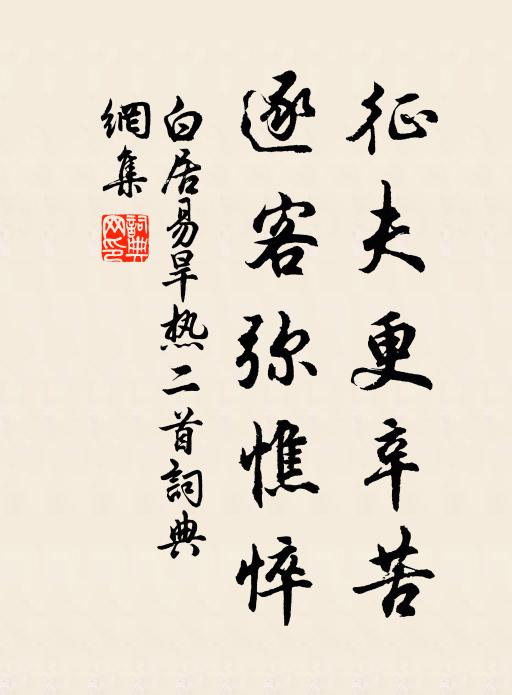 征夫更辛苦
逐客弥憔悴
白居易旱热二首詞典
網集
詞典网印